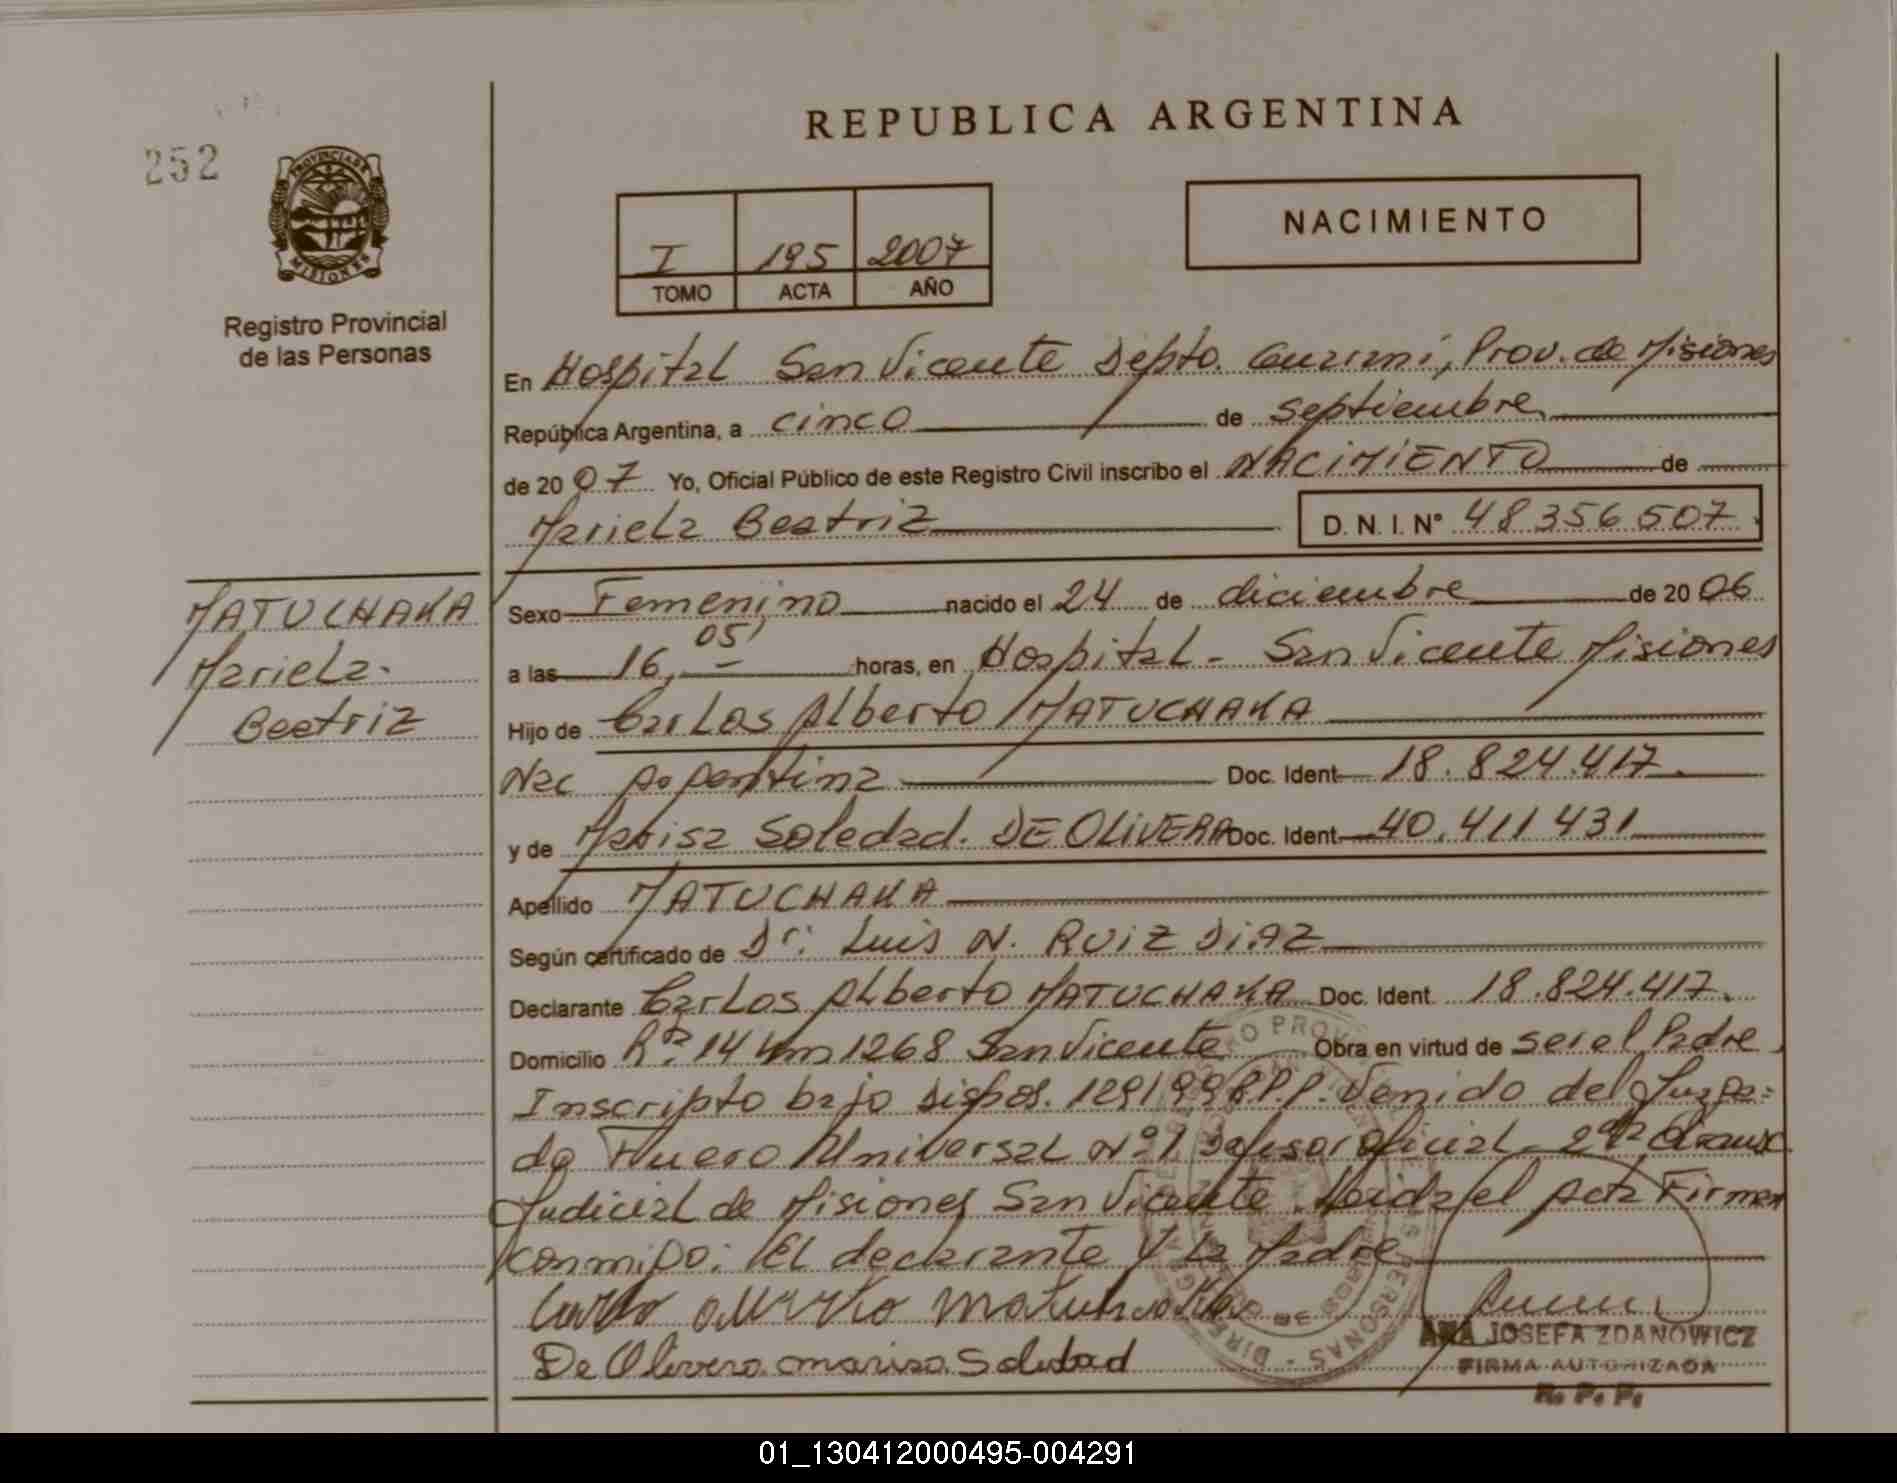 REPUBLICA ARGENTINA
252
PROVINCIA DE
MISIONES
Registro Provincial
de las Personas
I 195 2007
TOMO ACTA AÑO
NACIMIENTO
En Hospital San Vicente Depto. Guarani, Prov. de Misiones
República Argentina, a cinco de septiembre
de 2007 Yo, Oficial Público de este Registro Civil inscribo el NACIMIENTO de
Mariela Beatriz D.N.I. Nº 48356507.
MATUCHAKA
Mariela-
Beatriz
Sexo Femenino nacido el 24 de diciembre de 2006
a las 16,05' horas, en Hospital - San Vicente Misiones
Hijo de Carlos Alberto MATUCHAKA
Nac Argentina Doc. Ident 18.824.417.
y de Marisa Soledad. DE OLIVERA Doc. Ident 40.411 431
Apellido MATUCHAKA
Según certificado de Dr: Luis N. RUIZ DIAZ
Declarante Carlos Alberto MATUCHAKA Doc. Ident. 18.824.417.
Domicilio Rta. 14 km 1268 San Vicente Obra en virtud de ser el Padre,
Inscripto bajo Dispos. 129/99 R.P.P. Venido del Juzga=
do Fuero Universal Nº 1 Defensor oficial - 2da
Judicial de Misiones San Vicente. Leida el Acta Firman
conmigo: El declarante y la Madre
De Olivera marisa Soledad
ANA JOSEFA ZDANOWICZ
FIRMA AUTORIZADA
R. P. P.
01_130412000495-004291